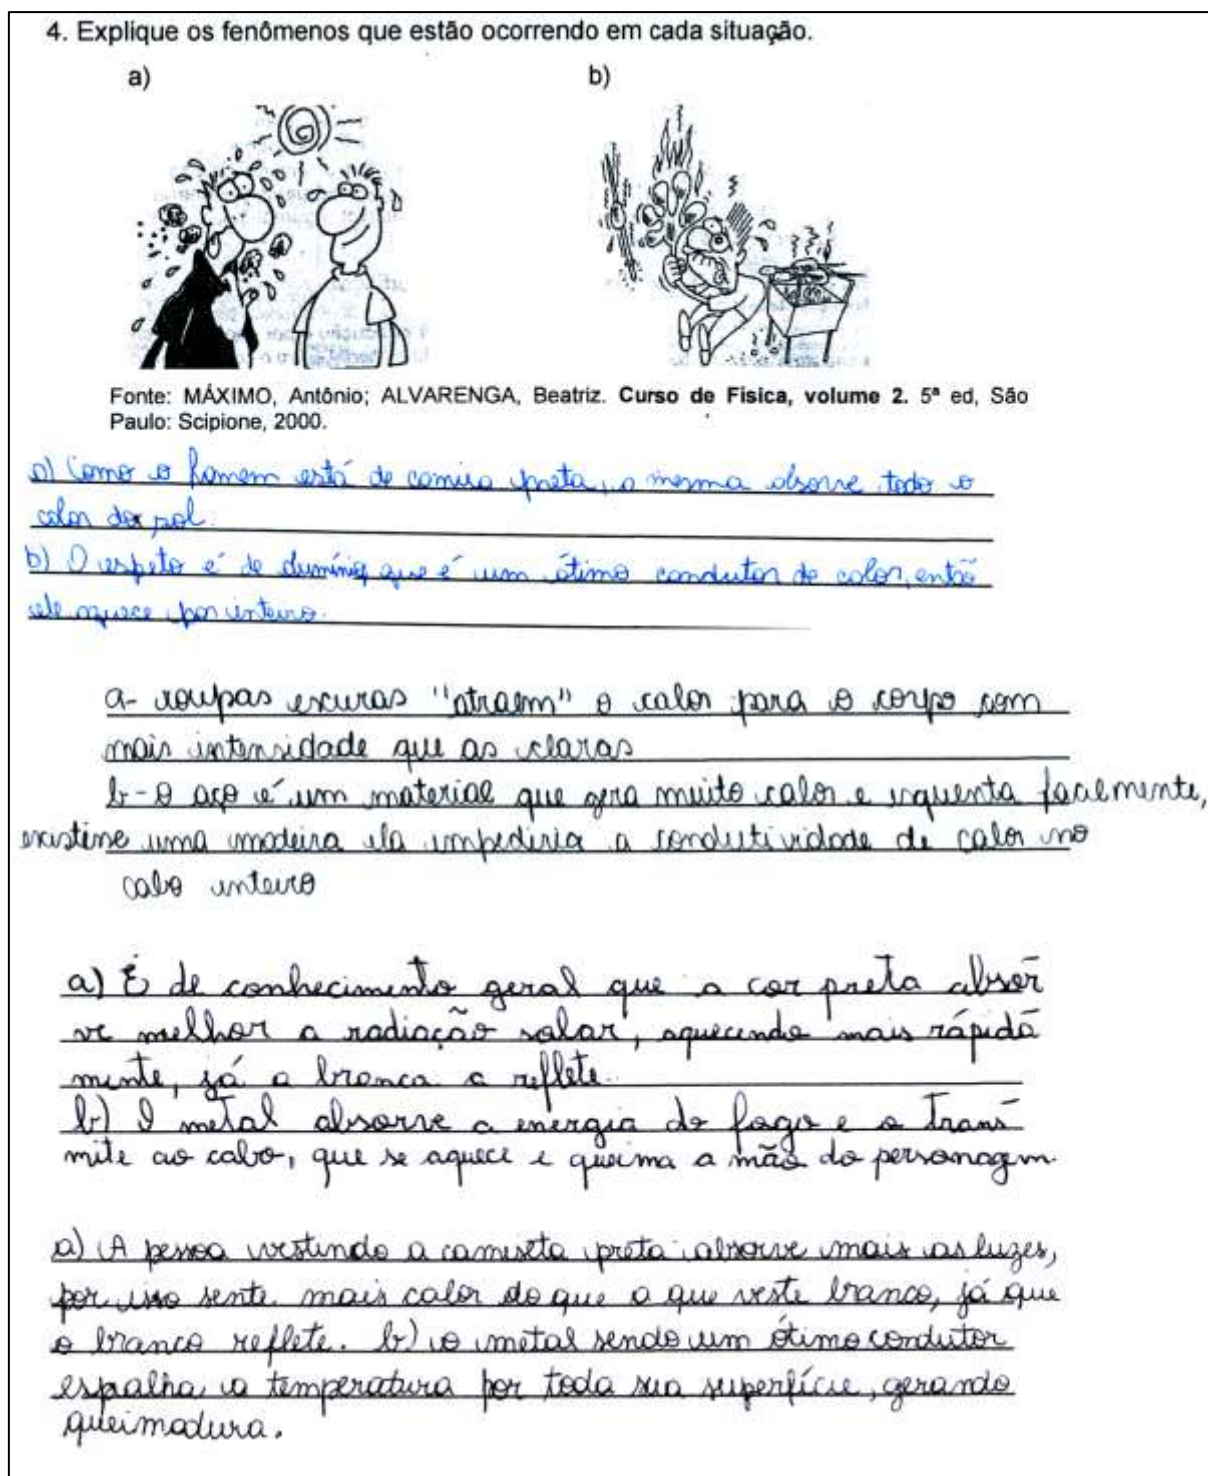 4. Explique os fenômenos que estão ocorrendo em cada situação.
a) b)
Fonte: MÁXIMO, Antônio; ALVARENGA, Beatriz. Curso de Física, volume 2. 5ª ed, São
Paulo: Scipione, 2000.
a) Como o homem está de camisa preta, a mesma absorve todo o
calor do sol.
b) O espeto é de alumínio, que é um ótimo condutor de calor, então
ele aquece por inteiro.
a- roupas escuras "atraem" o calor para o corpo com
mais intensidade que as claras
b- O aço é um material que gera muito calor e esquenta facilmente,
existisse uma madeira ela impediria a condutividade de calor no
cabo inteiro
a) É de conhecimento geral que a cor preta absor
ve melhor a radiação solar, aquecendo mais rápida
mente, já a branca a reflete.
b) O metal absorve a energia do fogo e a trans
mite ao cabo, que se aquece e queima a mão do personagem.
a) A pessoa vestindo a camiseta preta absorve mais as luzes,
por isso sente mais calor do que o que veste branco, já que
o branco reflete. b) o metal sendo um ótimo condutor
espalha a temperatura por toda sua superfície, gerando
queimadura.